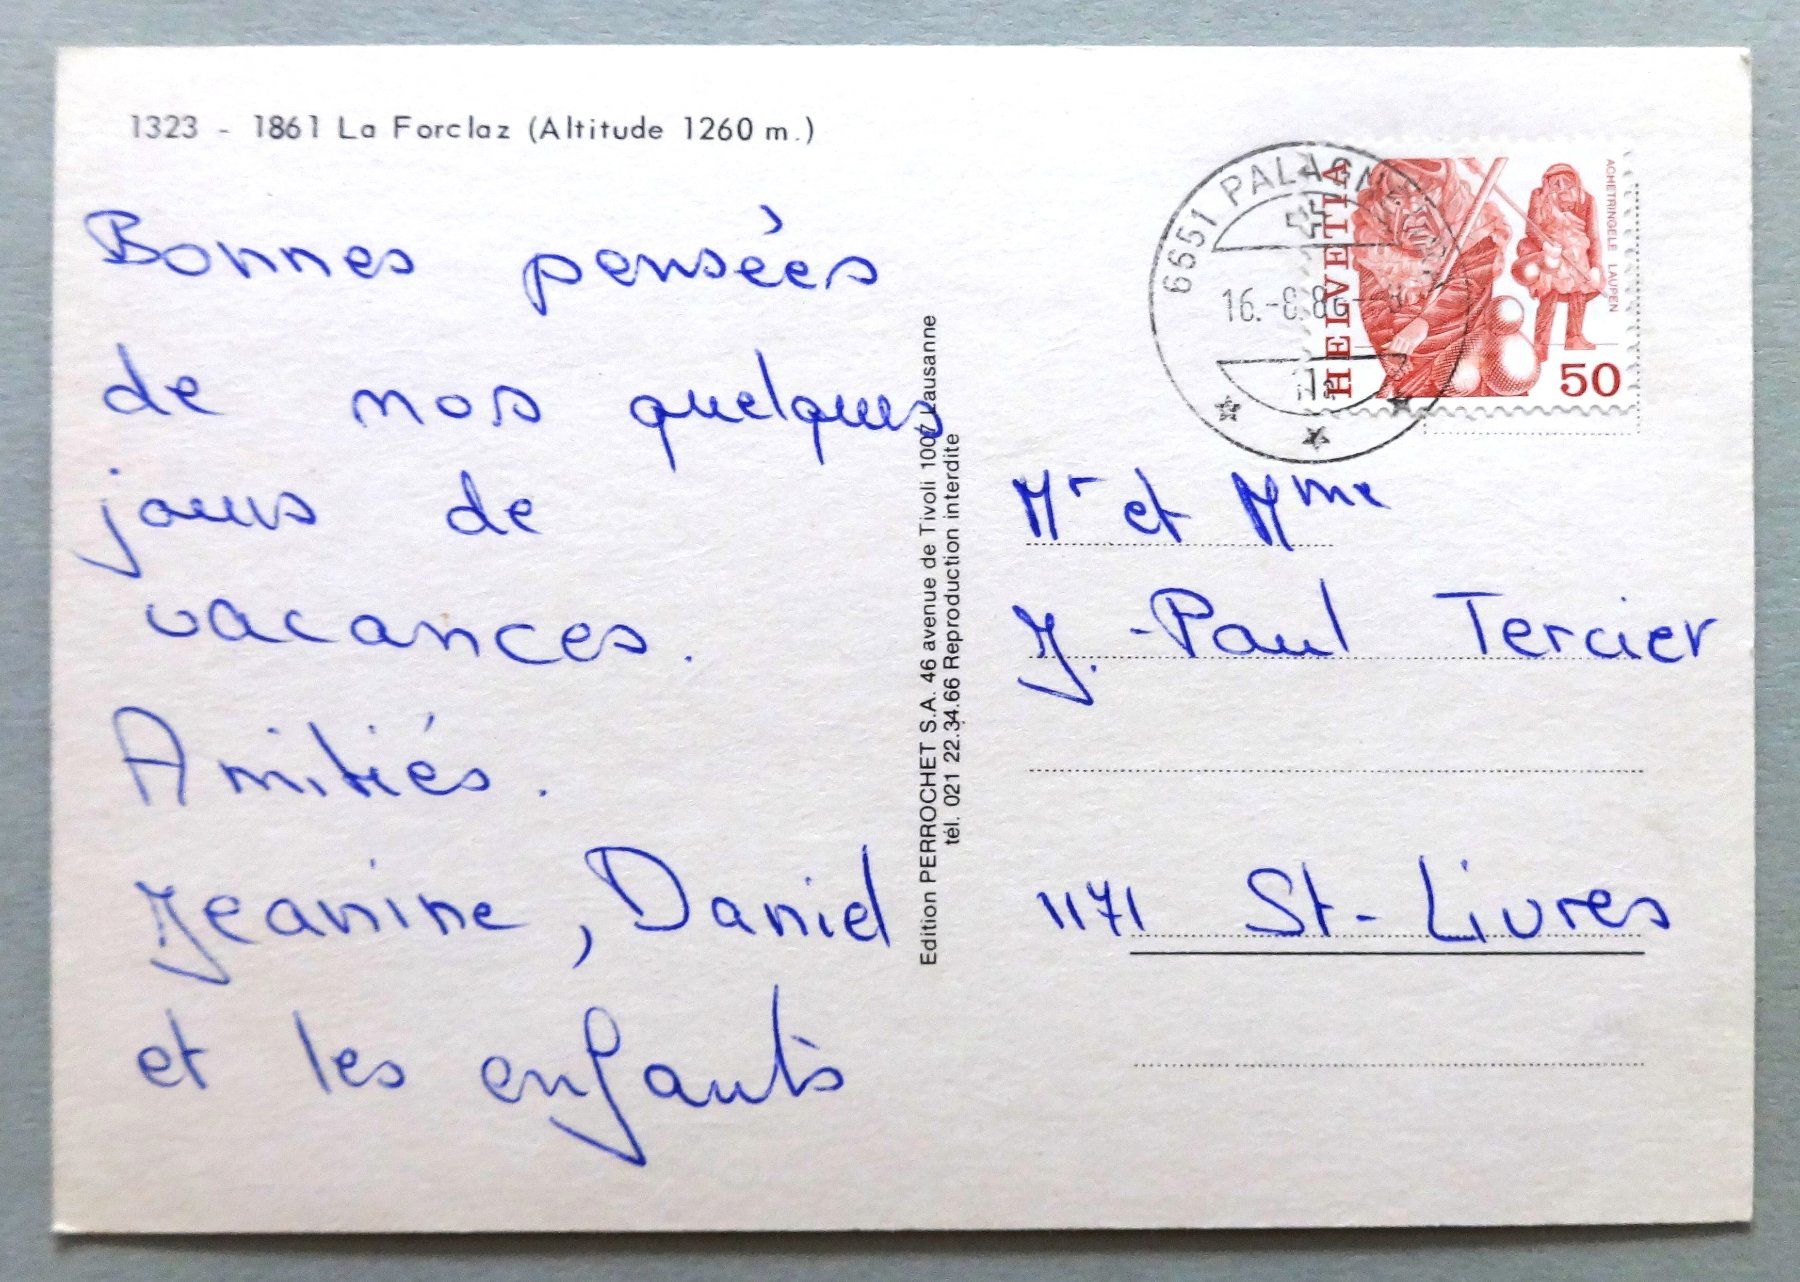 1323 - 1861 La Forclaz (Altitude 1260 m.)
Bonnes pensées
de nos quelques
jours de
vacances.
Amitiés.
Jeanine, Daniel
et les enfants
Edition PERROCHET S.A. 46 avenue de Tivoli 1007 Lausanne
tél. 021 22.34.66 Reproduction interdite
6651
HELVETIA
ACHETRINGELE LAUPEN
50
Mr et Mme
J.-Paul Tercier
1171 St-Livres